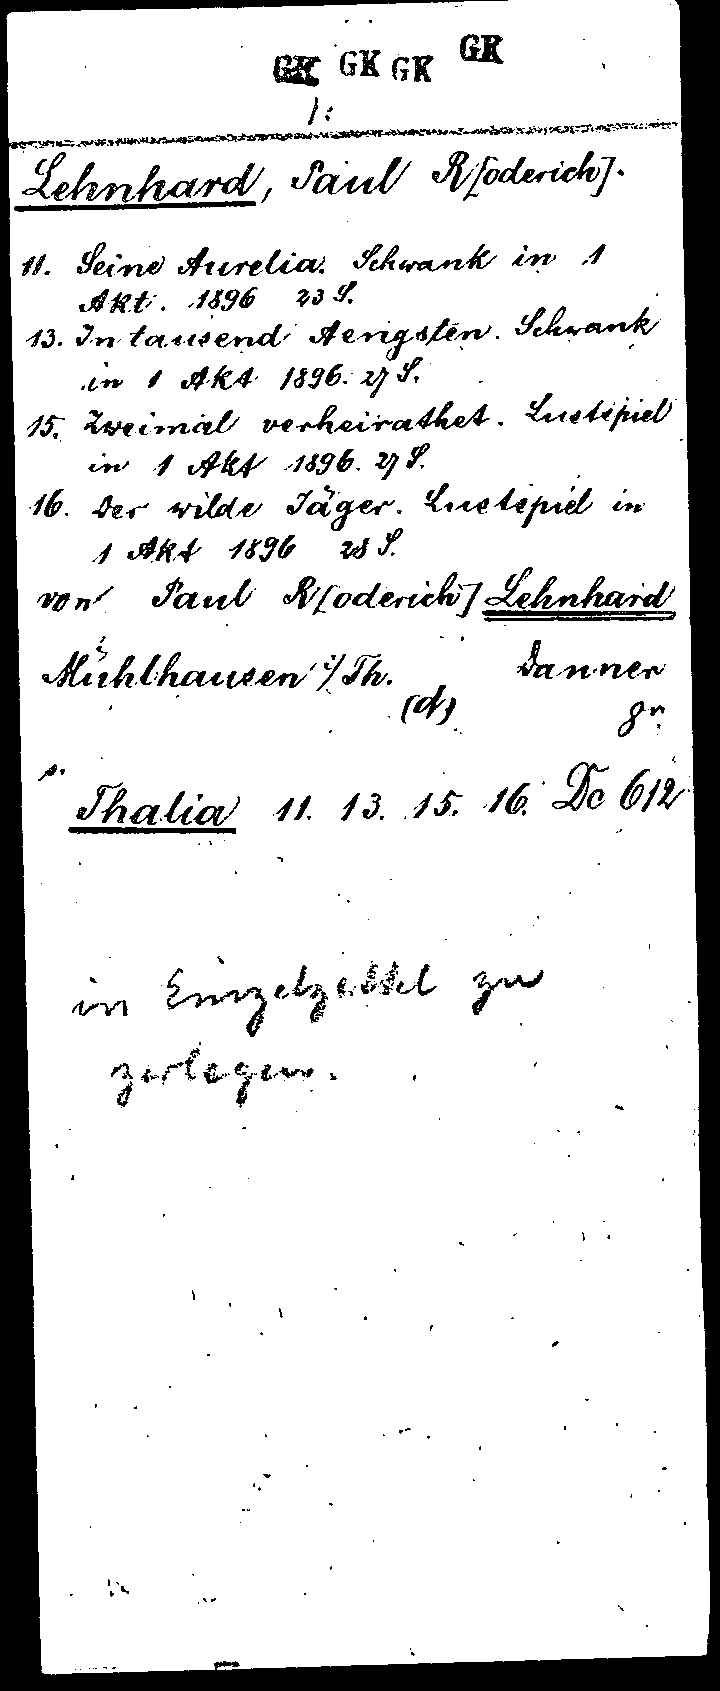 GK GK GK GK
1:
Lehnhard, Paul R[oderich].
11. Seine Aurelia. Schwank in 1
Akt. 1896 23 S.
13. In tausend Aengsten. Schwank
in 1 Akt 1896. 27 S.
15. Zweimal verheirathet. Lustspiel
in 1 Akt 1896. 27 S.
16. Der wilde Jäger. Lustspiel in
1 Akt 1896 28 S.
von Paul R[oderich] Lehnhard
Mühlhausen i/Th. Danner
(d) 8°
s.
Thalia 11. 13. 15. 16. Dc 612
in Einzelzettel zu
zerlegen.